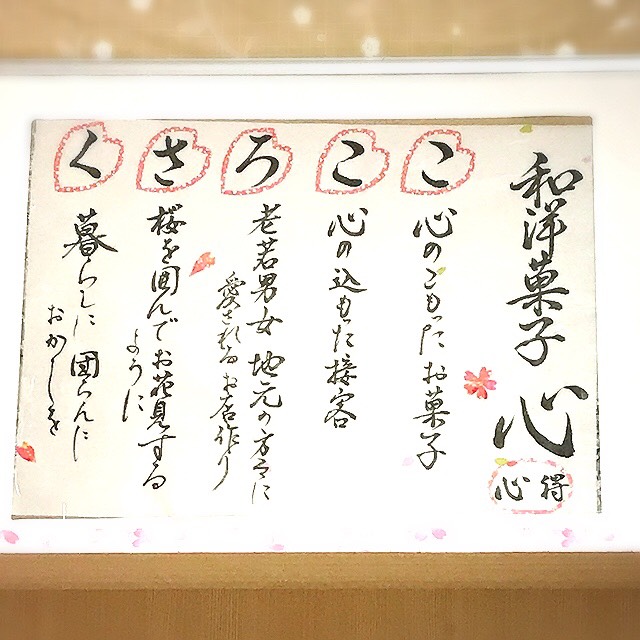 和洋菓子 心
心得
こ
心のこもったお菓子
こ
心の込もった接客
ろ
老若男女 地元の方々に
愛されるお店作り
さ
桜を囲んでお花見する
ように
く
暮らしに 団らんに
おかしを